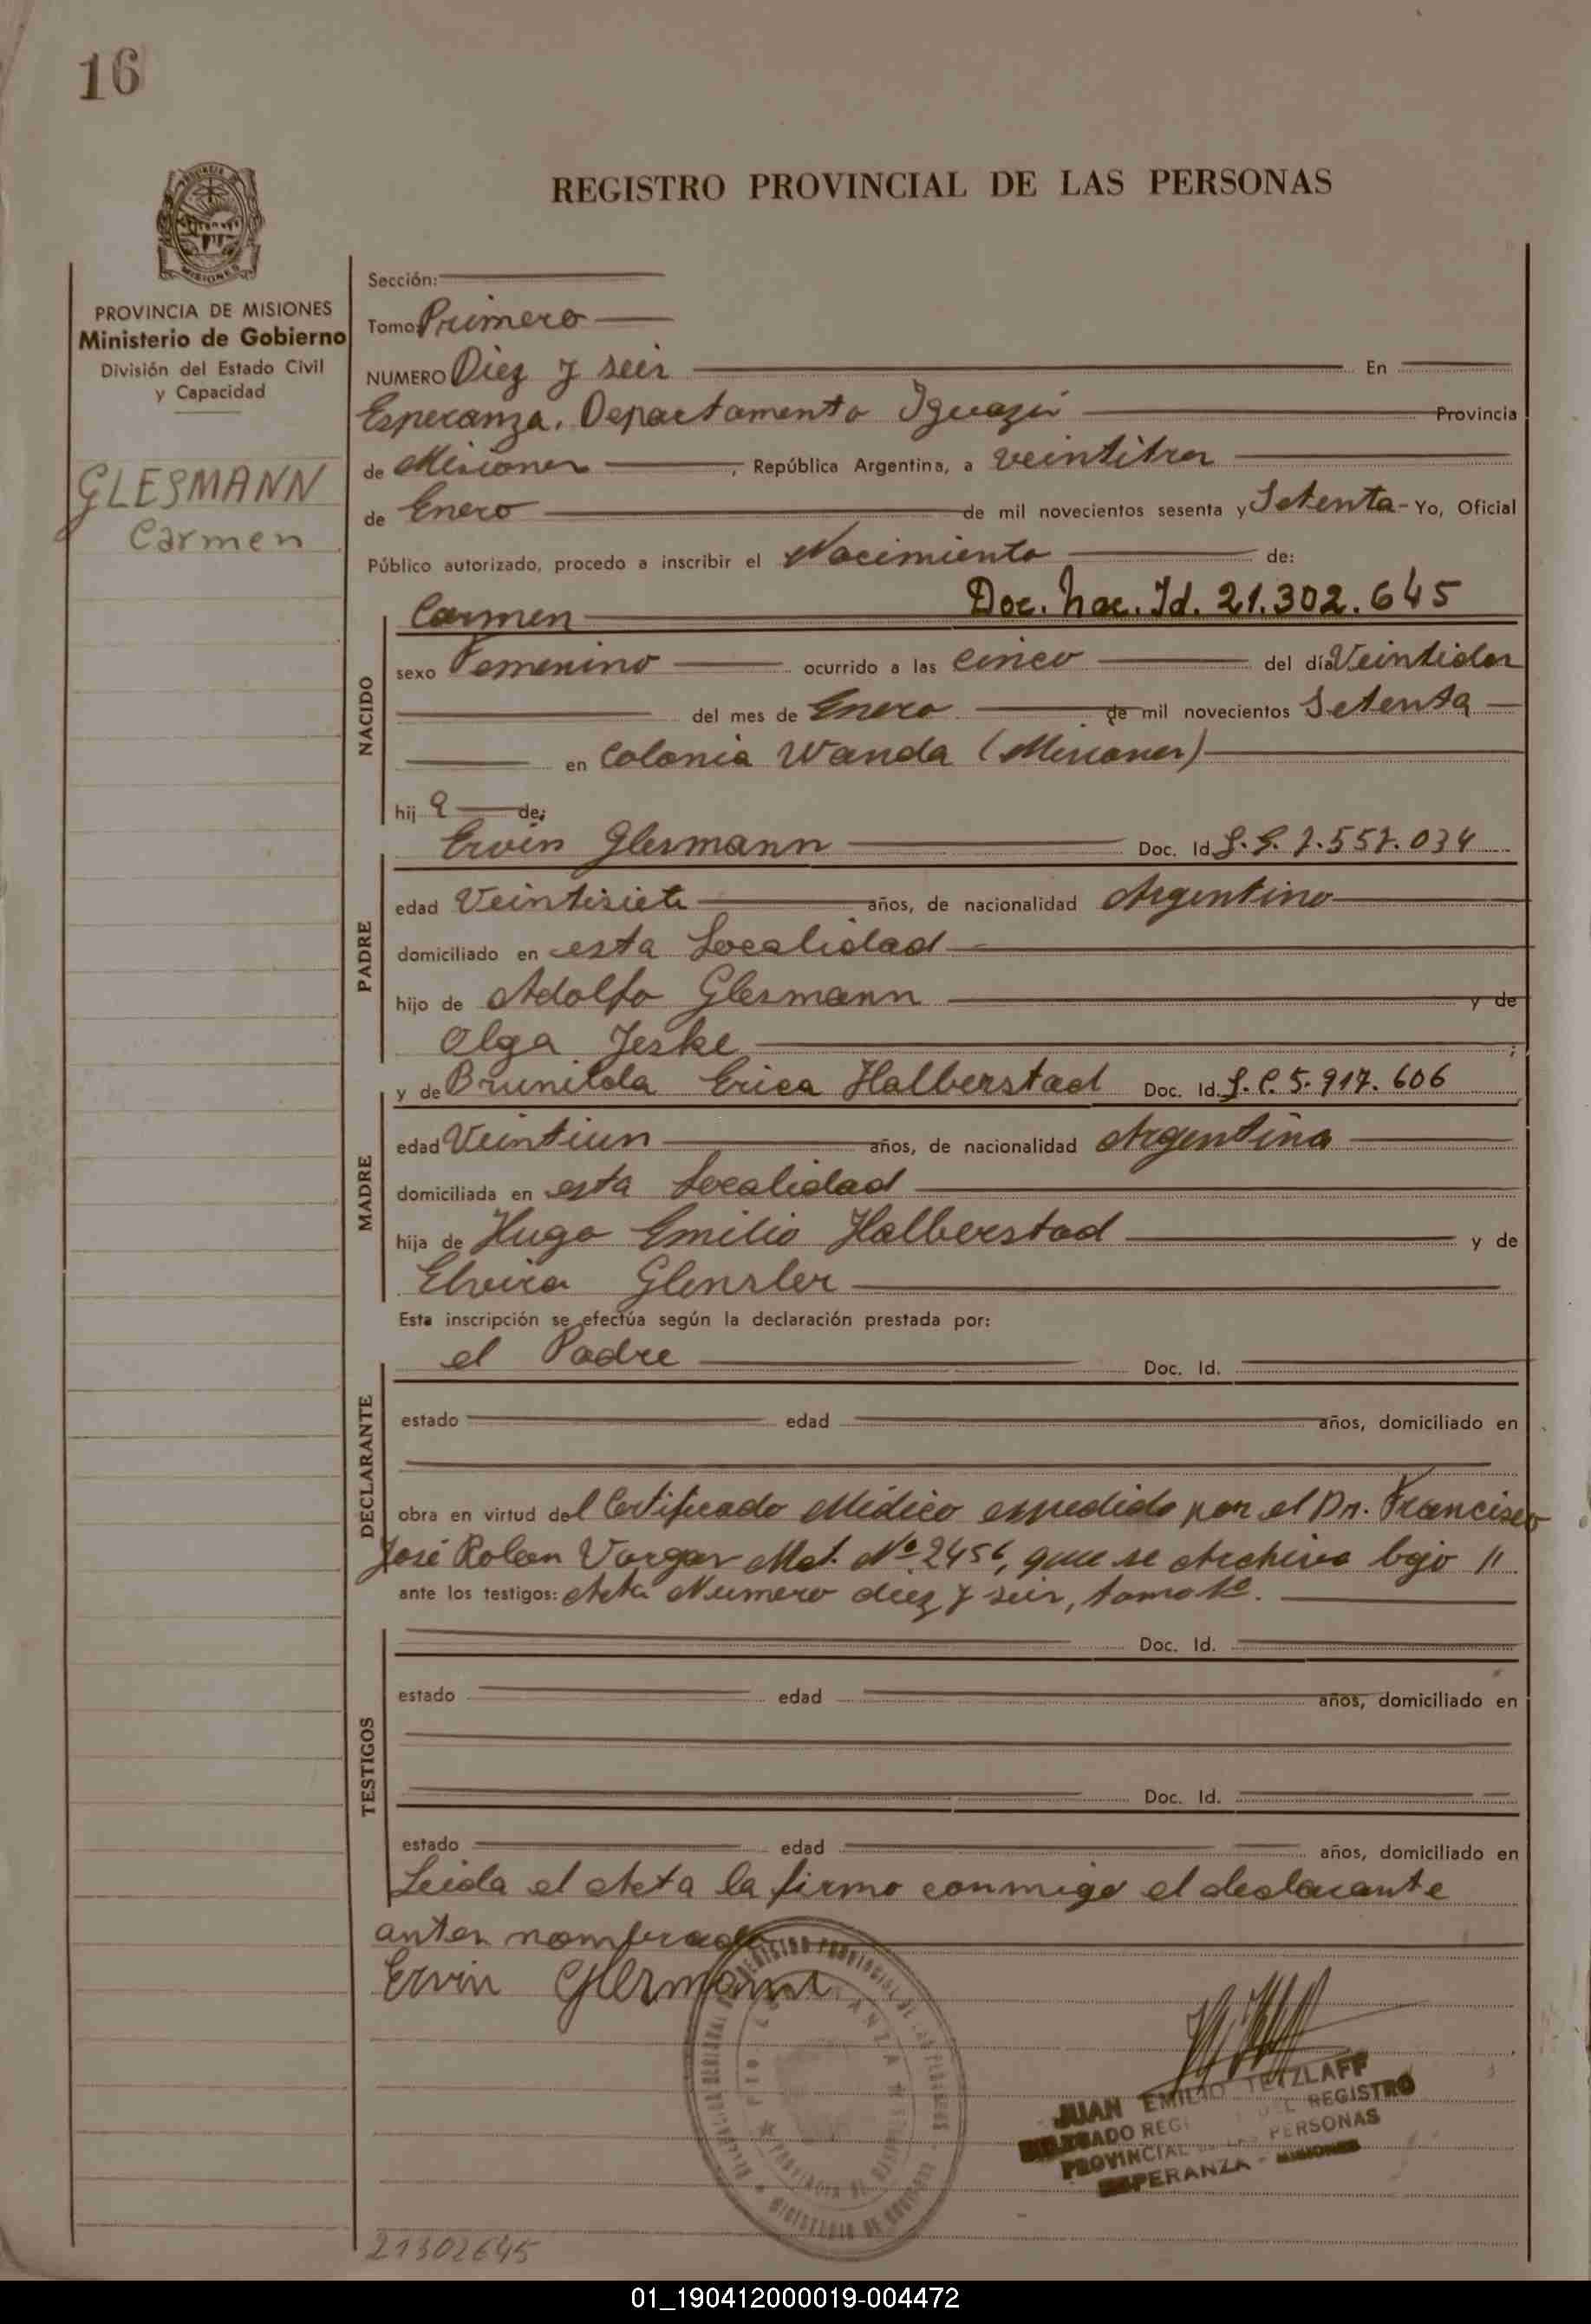 16
REGISTRO PROVINCIAL DE LAS PERSONAS
PROVINCIA DE MISIONES
Ministerio de Gobierno
División del Estado Civil
y Capacidad
GLESMANN
Carmen
Sección:
Tomo: Primero
NUMERO Diez y seis En
Esperanza. Departamento Iguazú Provincia
de Misiones, República Argentina, a veintitres
de Enero de mil novecientos sesenta y Setenta - Yo, Oficial
Público autorizado, procedo a inscribir el Nacimiento de:
Carmen Doc. Nac. Id. 21.302.645
NACIDO
sexo Femenino ocurrido a las cinco del día Veintidos
del mes de Enero de mil novecientos Setenta
en Colonia Wanda (Misiones)
hij a de:
PADRE
Ervin Glesmann Doc. Id. 7.557.034
edad Veintisiete años, de nacionalidad Argentino
domiciliado en esta Localidad
hijo de Adolfo Glesmann y de
Olga Jeske ;
MADRE
y de Brunilda Erica Halberstad Doc. Id. L.C. 5.917.606
edad Veintiun años, de nacionalidad Argentina
domiciliada en esta Localidad
hija de Hugo Emilio Halberstad y de
Elvira
Esta inscripción se efectúa según la declaración prestada por:
DECLARANTE
el Padre Doc. Id.
estado edad años, domiciliado en
obra en virtud del Certificado Médico expedido por el Dr. Francisco
José Rolan Vargas Mat. Nº 2456, que se Archiva bajo //
ante los testigos: Acta Numero diez y seis, tomo 1º.
TESTIGOS
Doc. Id.
estado edad años, domiciliado en
Doc. Id.
estado edad años, domiciliado en
Leida el Acta la firma conmigo el declarante
antes nombrado
Ervin Glesmann
JUAN EMILIO TETZLAFF
DELEGADO REGI DEL REGISTRO
PROVINCIAL DE LAS PERSONAS
ESPERANZA - MISIONES
21302645
01_190412000019-004472